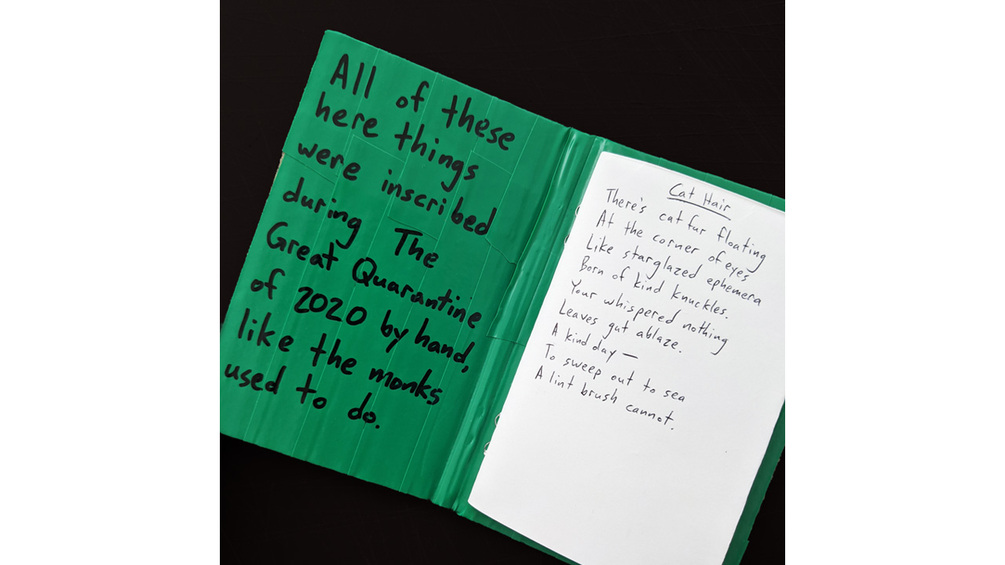 All of these
here things
were inscribed
during The
Great Quarantine
of 2020 by hand,
like the monks
used to do.
Cat Hair
There's cat fur floating
At the corner of eyes
Like starglazed ephemera
Born of kind knuckles.
Your whispered nothing
Leaves gut ablaze.
A kind day —
To sweep out to sea
A lint brush cannot.